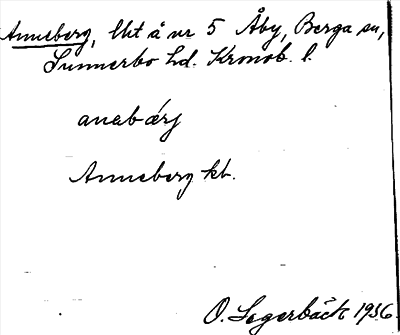 Anneberg, lht å nr 5 Åby, Berga sn,
Sunnerbo hd. Kronob. l.
anabærj
Anneberg kb.
O. Lagerbäck 1936.